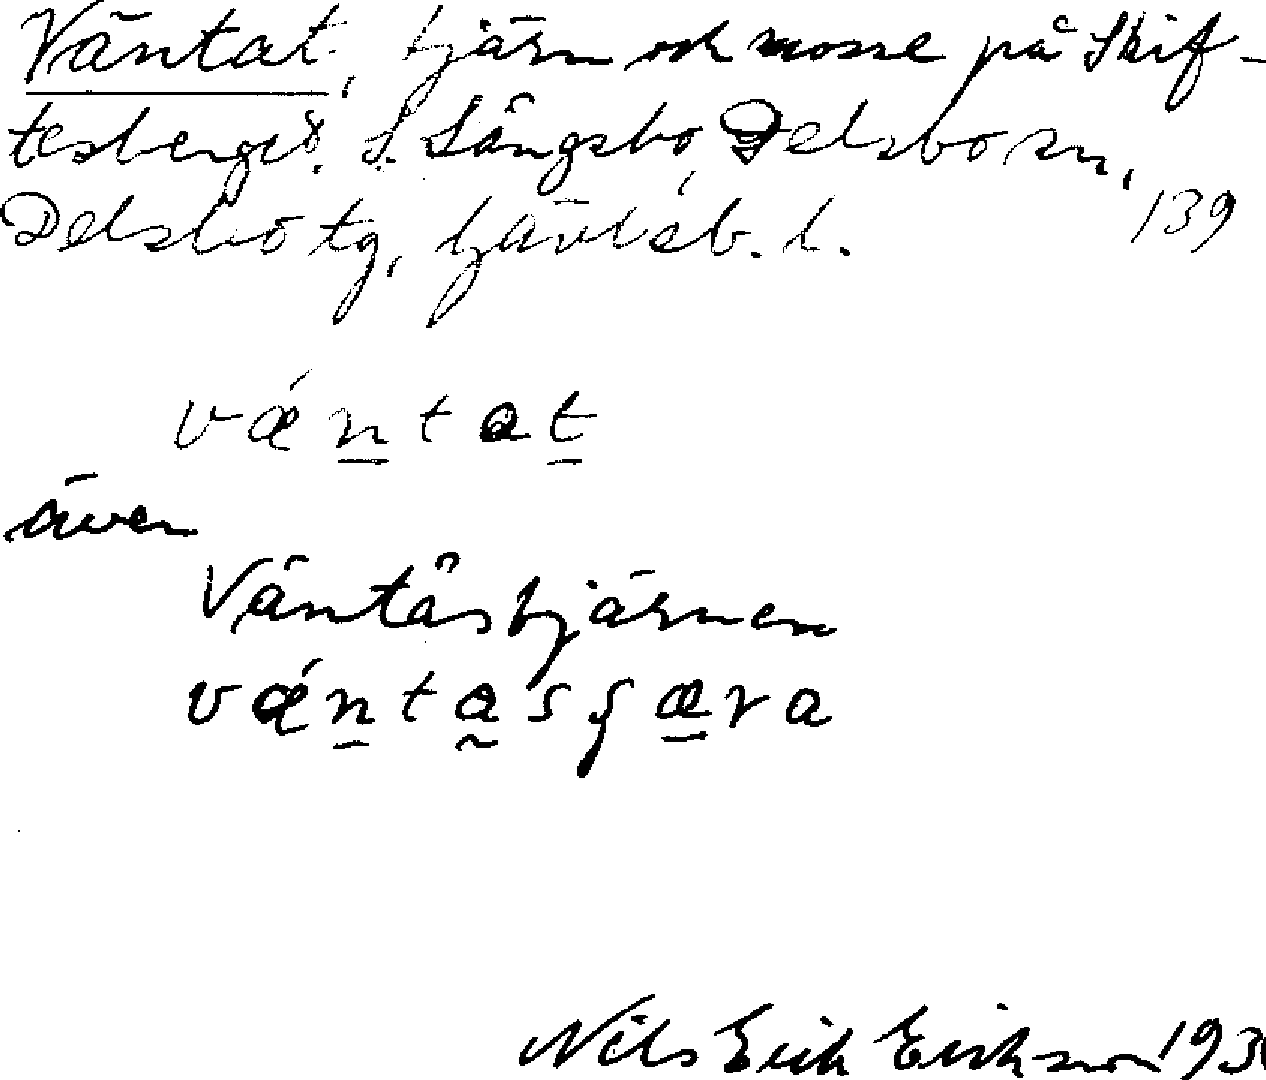 Väntat, tjärn och mosse på Skif-
tesberget. S. Långsbo, Delsbo sn,
Delsbo tg, Gävleb. l. 139
vǽn̲tat̲
även
Väntåstjärnen
vǽn̲ta̰sʂæ̲ra
Nils Erik Erikson 193